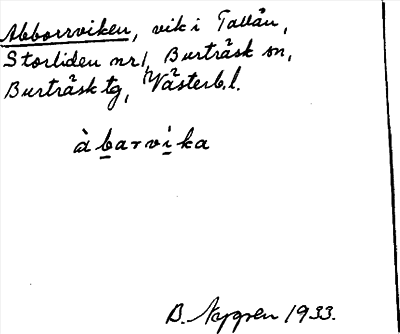 Abborrviken, vik i Tallån,
Storliden nr 1, Burträsk sn,
Burträsk tg, Västerb.l.
àbarvika
B. Nygren 1933.